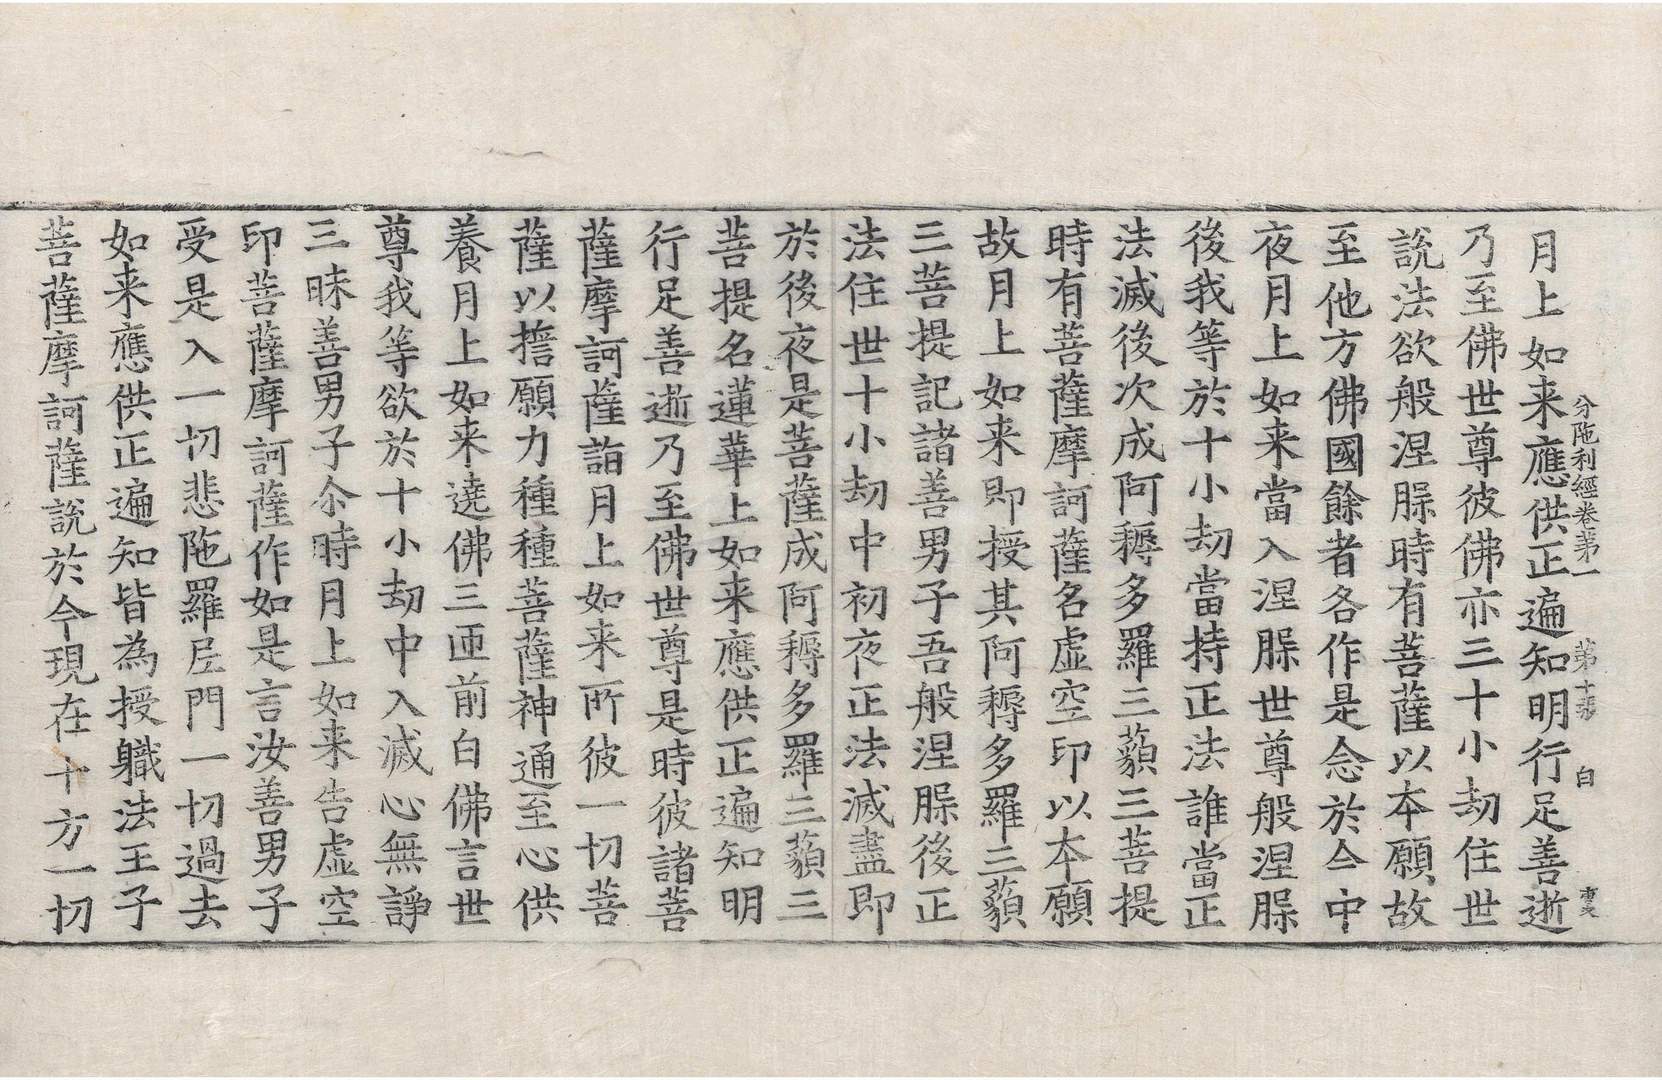 分陁利經卷第一　第十張　白
月上如来應供正遍知明行足善逝
乃至佛世尊彼佛亦三十小劫住世
說法欲般涅脲時有菩薩以本願故
至他方佛國餘者各作是念於今中
夜月上如来當入涅脲世尊般涅脲
後我等於十小劫當持正法誰當正
法滅後次成阿耨多羅三藐三菩提
時有菩薩摩訶薩名虛空印以本願
故月上如来即授其阿耨多羅三藐
三菩提記諸善男子吾般涅脲後正
法住世十小劫中初夜正法滅盡即
於後夜是菩薩成阿耨多羅三藐三
菩提名蓮華上如来應供正遍知明
行足善逝乃至佛世尊是時彼諸菩
薩摩訶薩詣月上如来所彼一切菩
薩以擔願力種種菩薩神通至心供
養月上如来遶佛三匝前白佛言世
尊我等欲於十小劫中入滅心無諍
三昧善男子尒時月上如来告虛空
印菩薩摩訶薩作如是言汝善男子
受是入一切悲陁羅𡰱門一切過去
如来應供正遍知皆為授軄法王子
菩薩摩訶薩說於今現在十方一切